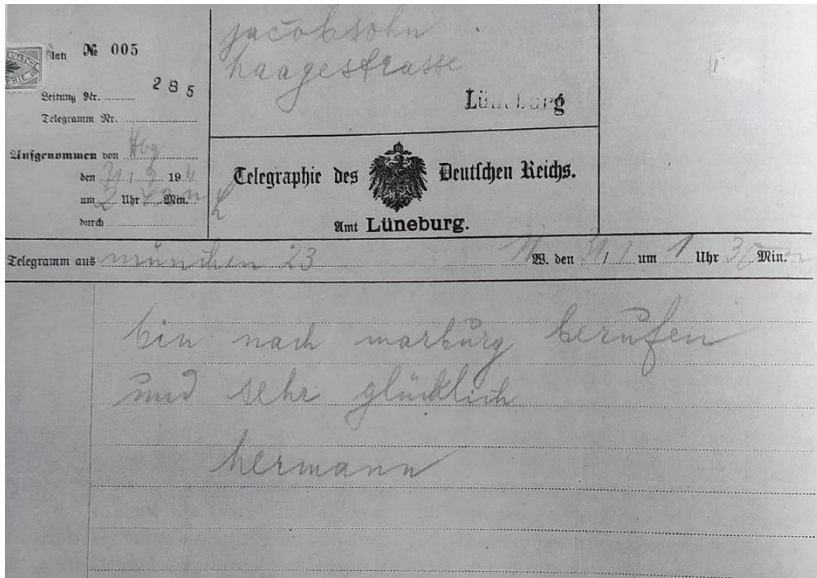 Blatt № 005
285
Leitung Nr.
Telegramm Nr.
Aufgenommen von Hbg
den 19
um 2 Uhr Min.
durch
jacobsohn
haagestrasse
Lüneburg
Telegraphie des Deutschen Reichs.
Amt Lüneburg.
Telegramm aus münchen 23 W. den um 1 Uhr Min.
bin nach marburg berufen
und sehr glücklich
hermann